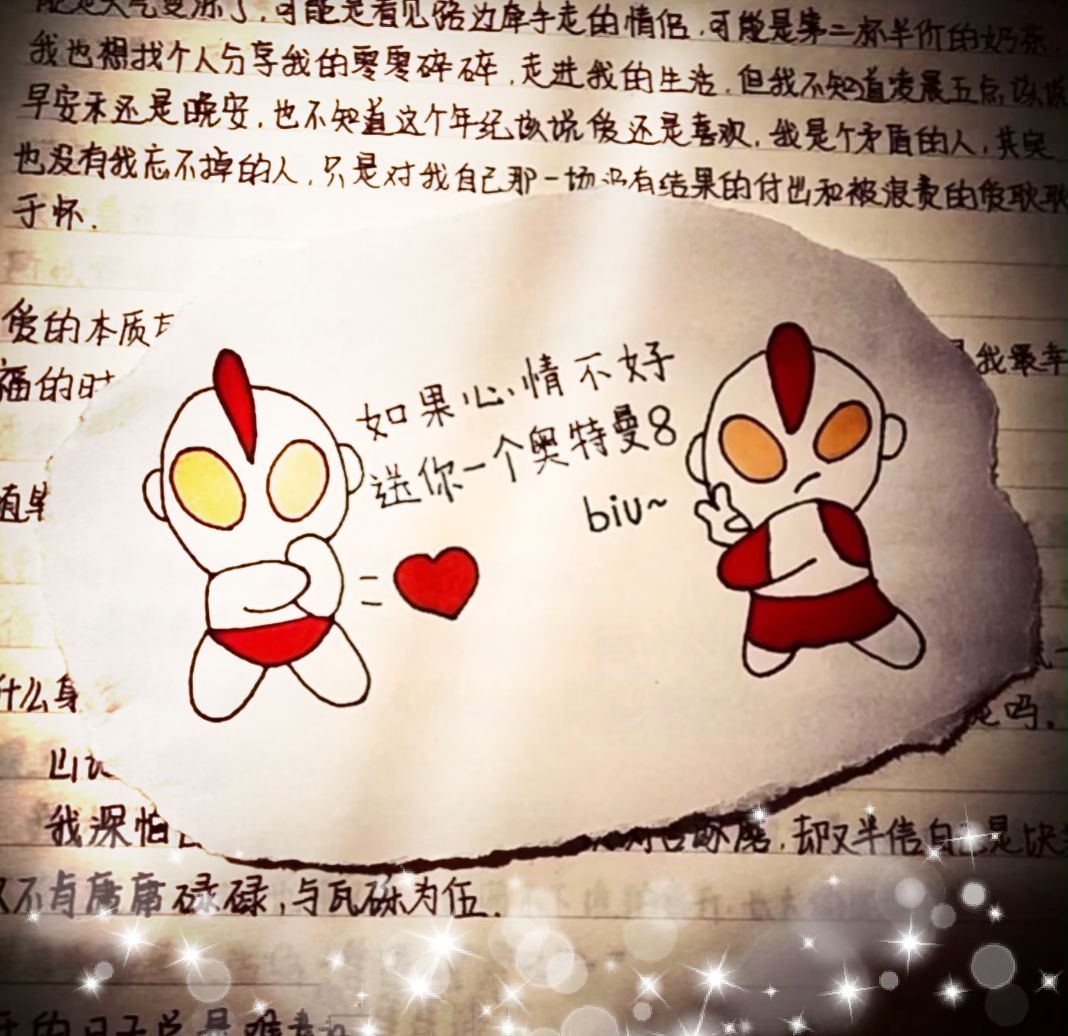 能是天气变凉了,可能是看见路边牵手走的情侣,可能是第二杯半价的奶茶,
我也想找个人分享我的零零碎碎,走进我的生活,但我不知道凌晨五点该说
早安禾还是晚安,也不知道这个年纪该说爱还是喜欢,我是个矛盾的人,其实
也没有我忘不掉的人,只是对我自己那一场没有结果的付出和被浪费的爱耿耿
于怀.
爱的本质
是我最幸
福的时
如果心情不好
送你一个奥特曼8
biu~
=
什么身
是吗.
我深怕
琢磨,却又半信自己是块
不肯庸庸碌碌,与瓦砾为伍.
的日子总是难